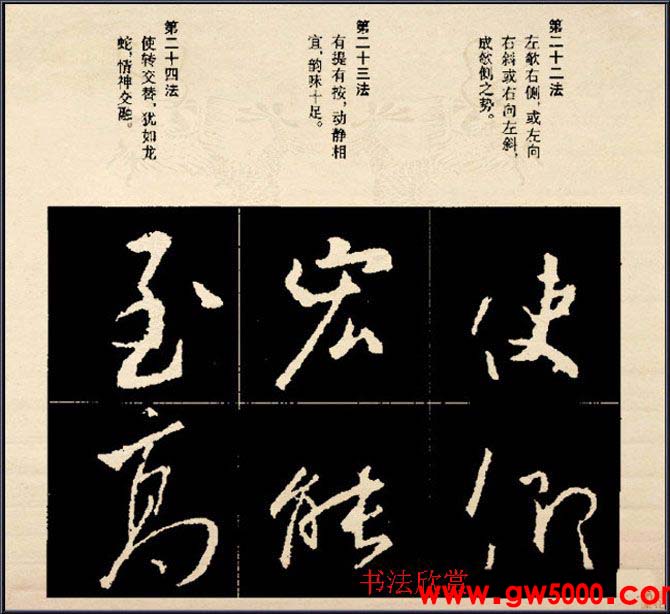 第二十二法
左欹右侧，或左向
右斜或右向左斜，
成欹侧之势。
第二十三法
有提有按，动静相
宜，韵味十足。
第二十四法
使转交替，犹如龙
蛇，情神交融。
使
宏能
至高
书法欣赏
www.gw5000.com